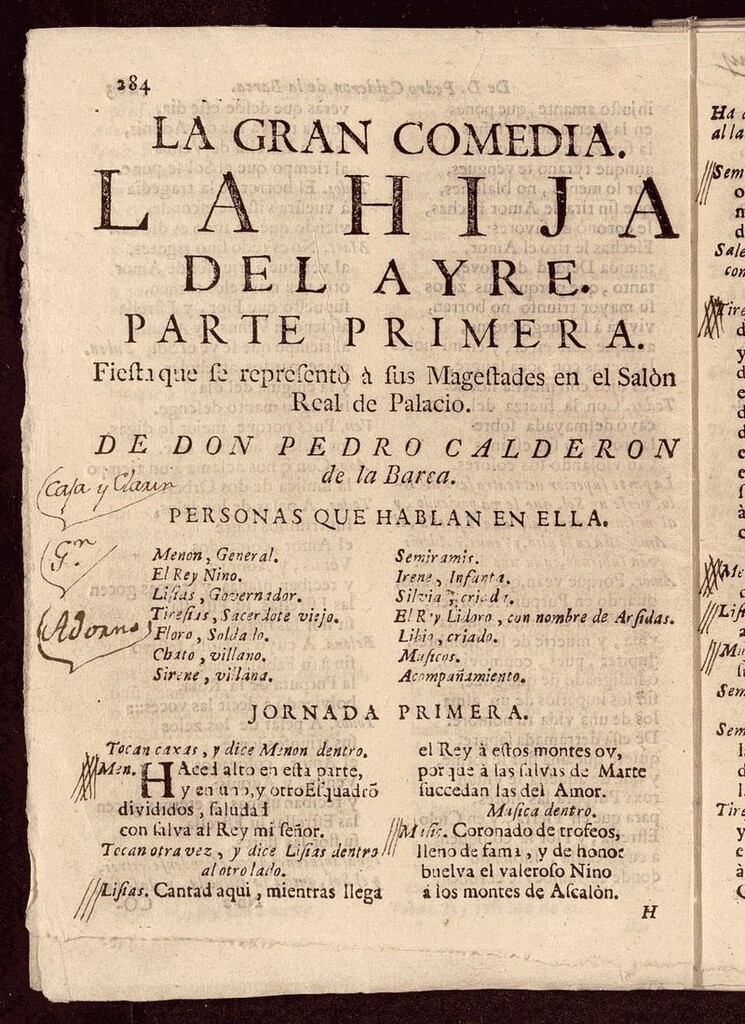 284
LA GRAN COMEDIA.
LA HIJA
DEL AYRE.
PARTE PRIMERA.
Fiesta que se representò à sus Magestades en el Salòn
Real de Palacio.
DE DON PEDRO CALDERON
de la Barca.
Casa y Clarin
PERSONAS QUE HABLAN EN ELLA.
Gⁿ
Adorno
Menon, General.
El Rey Nino.
Lisias, Governador.
Tiresias, Sacerdote viejo.
Floro, Soldado.
Chato, villano.
Sirene, villana.
Semiramis.
Irene, Infanta.
Silvia, criada.
El Rey Lidoro, con nombre de Arsidas.
Libio, criado.
Musicos.
Acompañamiento.
JORNADA PRIMERA.
Tocan caxas, y dice Menon dentro.
Men. HAced alto en esta parte,
y en uno, y otro Esquadrõ
divididos, saludad
con salva al Rey mi señor.
Tocan otra vez, y dice Lisias dentro
al otro lado.
Lisias. Cantad aqui, mientras llega
el Rey à estos montes oy,
porque à las salvas de Marte
succedan las del Amor.
Musica dentro.
Music. Coronado de trofeos,
lleno de fama, y de honor
buelva el valeroso Nino
à los montes de Ascalòn.
H